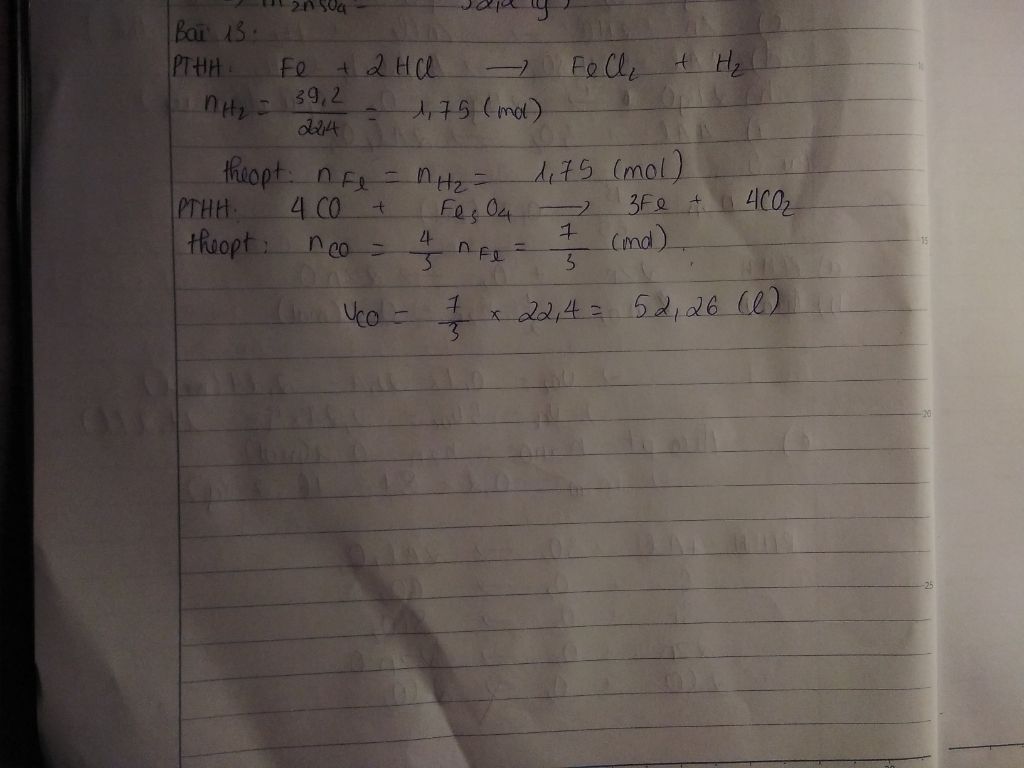 Bài 13:
PTHH: Fe + 2 HCl → FeCl₂ + H₂
nH₂ = 39,2/22,4 = 1,75 (mol)
theopt: nFe = nH₂ = 1,75 (mol)
PTHH: 4 CO + Fe₃O₄ → 3Fe + 4CO₂
theopt: nCO = 4/3 nFe = 7/3 (mol)
VCO = 7/3 × 22,4 = 52,26 (l)
15
20
25